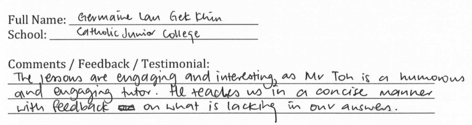 Full Name: Germaine Lau Gek Khin
School: Catholic Junior College
Comments / Feedback / Testimonial:
The lessons are engaging and interesting, as Mr Toh is a humorous
and engaging tutor. He teaches us in a concise manner
with feedback on what is lacking in our answers.